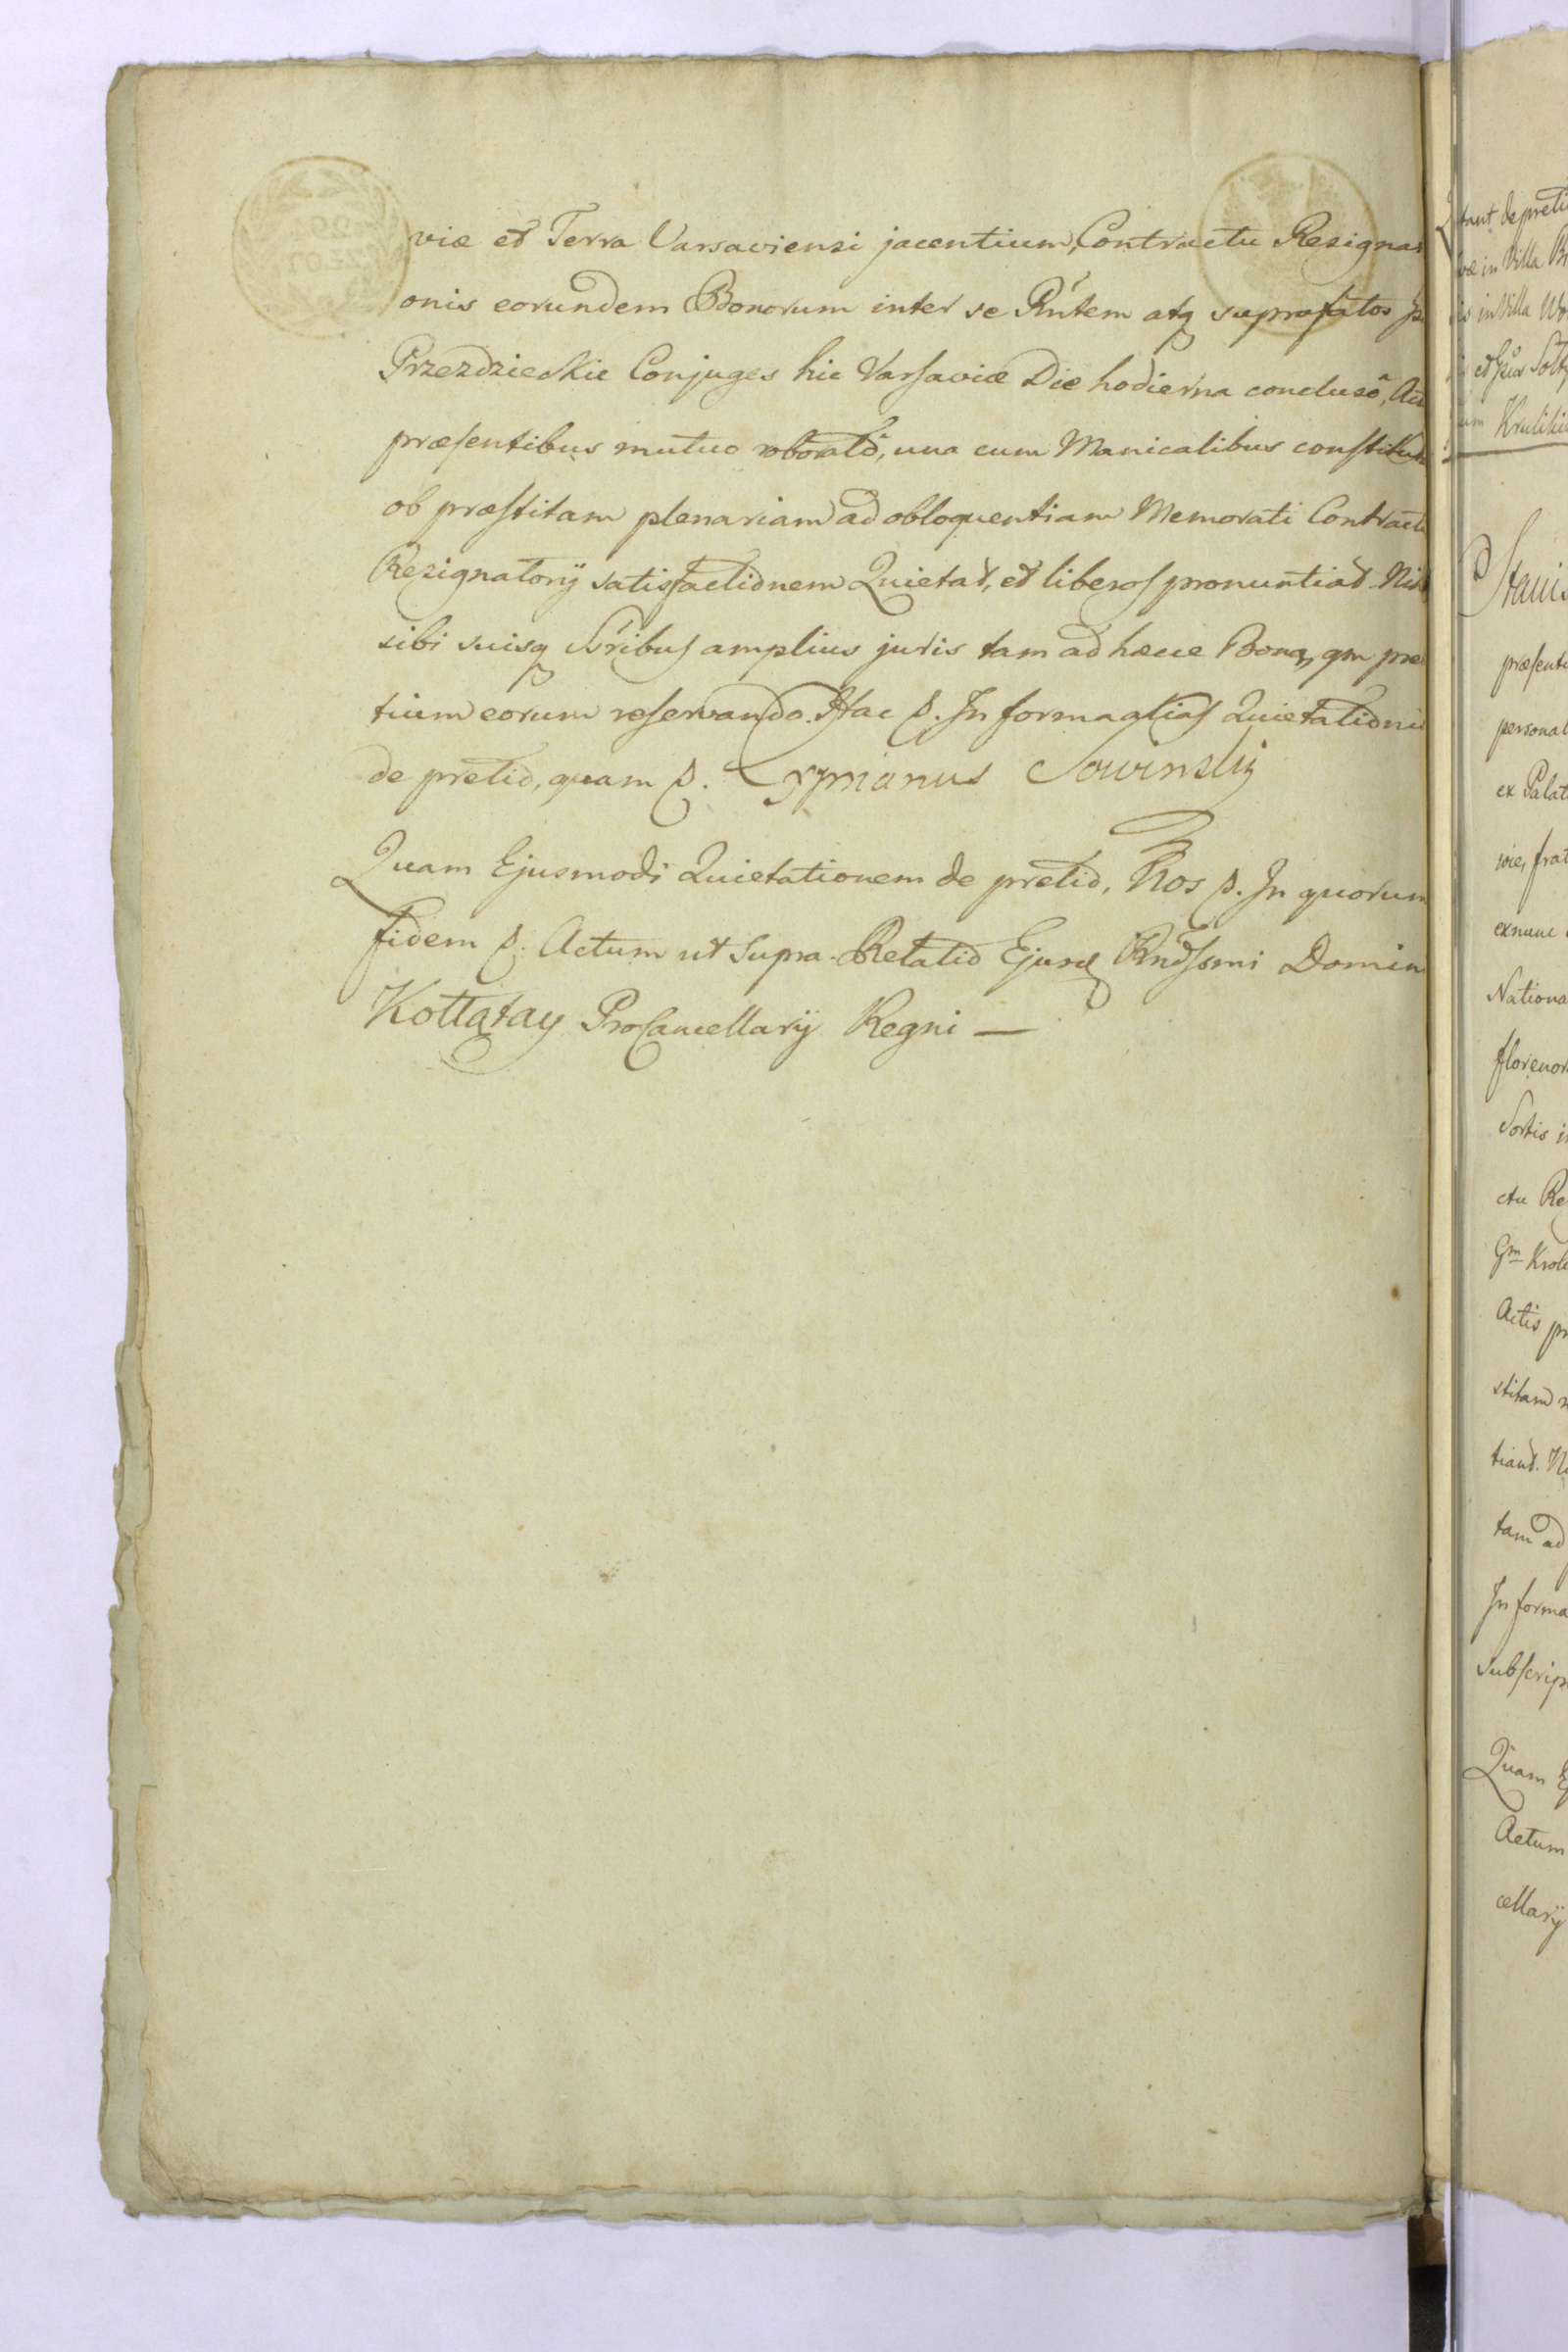 viæ et Terra Varsaviensi jacentium, Contractu Resigna
onis eorundem Bonorum inter se Rńtem atq suprafatos
Przezdzieckie Conjuges hic Varsaviæ Die hodierna concluso,
præsentibus mutuo roborato, una cum Manicalibus constitu
ob præstitam plenariam ad obloquentiam Memorati Contract
Resignatorij satisfactionem Quietat, et liberos pronuntiat
sibi suisq Sśribus amplius juris tam ad hæce Bona, qm pre
tium eorum reservando. Hac p. In forma alias Quietationi
de pretio, quam p. Cyprianus Sowinski
Quam Ejusmodi Quietationem de pretio, Nos p. In quorum
fidem p. Actum ut Supra. Relatio Ejusd Rndssmi Domin
Kołłątay ProCancellarij Regni —
tant de preti
in Villa
in Villa
et
Stanis
præsent
personal
ex Palat
viæ, frat
exnunc
Nationa
florenor
Sortis i
ctu Re
Gm Krol
Actis pr
stitam
tiant. N
tam ad
In forma
Subscrip
Quam
Actum
cellarij